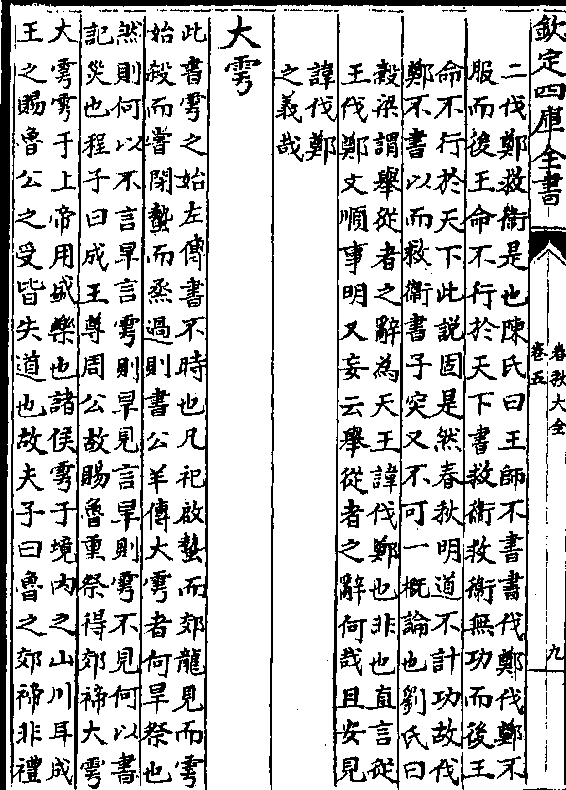 欽定四庫全書
春秋大全
卷五
九
二伐鄭救衛是也陳氏曰王師不書書伐鄭伐鄭不
服而後王命不行於天下書救衛救衛無功而後王
命不行於天下此說固是然春秋明道不計功故伐
鄭不書以而救衛書子突又不可一概論也劉氏曰
穀梁謂舉從者之辭為天王諱伐鄭也非也直言從
王伐鄭文順事明又妄云舉從者之辭何哉且安見
諱伐鄭
之義哉
大雩
此書雩之始左傳書不時也凡祀啟蟄而郊龍見而雩
始殺而嘗閉蟄而烝過則書公羊傳大雩者何旱祭也
然則何以不言旱言雩則旱見言旱則雩不見何以書
記災也程子曰成王尊周公故賜魯重祭得郊禘大雩
大雩雩于上帝用盛樂也諸侯雩于境內之山川耳成
王之賜魯公之受皆失道也故夫子曰魯之郊禘非禮